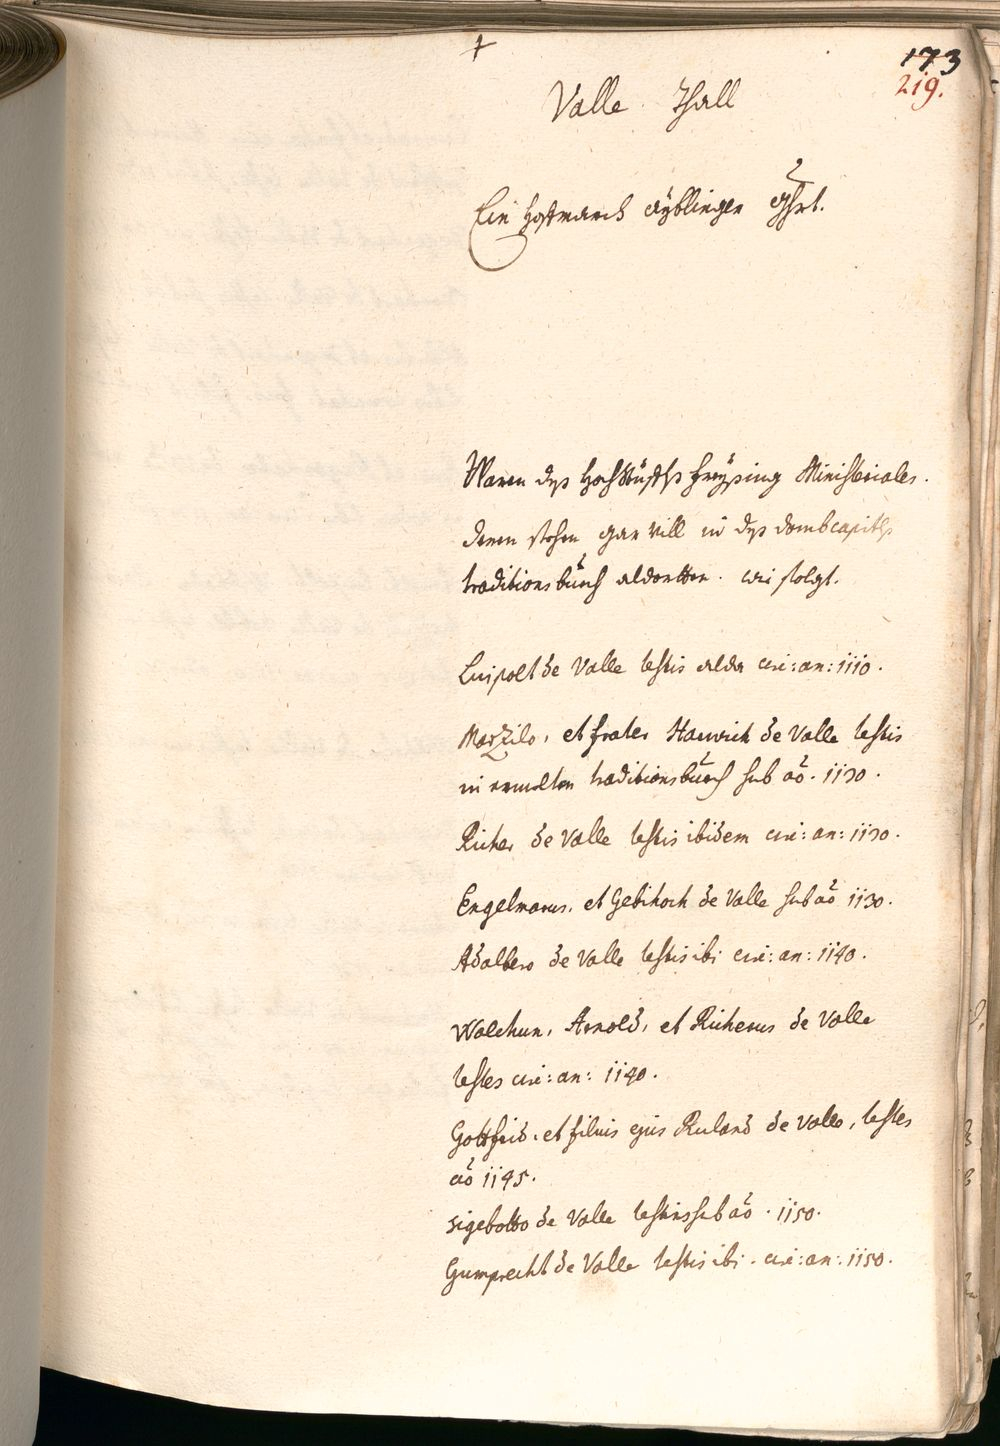 +
173
219.
Valle Thall
Ein Hofmarch Aÿblinger Ghrt.
Waren dess Hochstüffts Freÿsing Ministeriales.
deren stehen gar vill in dess dombcapitls
traditionsbuech aldortten. wie folgt.
Luipolt de Valle testis alda circ: an: 1110.
Marzilo, et frater Hainrich de Valle testis
in ermelten traditionsbuech sub ao. 1130.
Richer de Valle testis ibidem circ: an: 1130.
Engelmarus, et Gebihoch de Valle sub ao 1130.
Adalbero de Valle testis ibi circ: an: 1140.
Walchun, Arnold, et Richerus de Valle
testes circ: an: 1140.
Gottfrid, et filius ejus Ruland de Valle, testes
ao 1145.
Sigebotto de Valle testis sub ao. 1150.
Gumprecht de Valle testis ibi. circ: an: 1150.